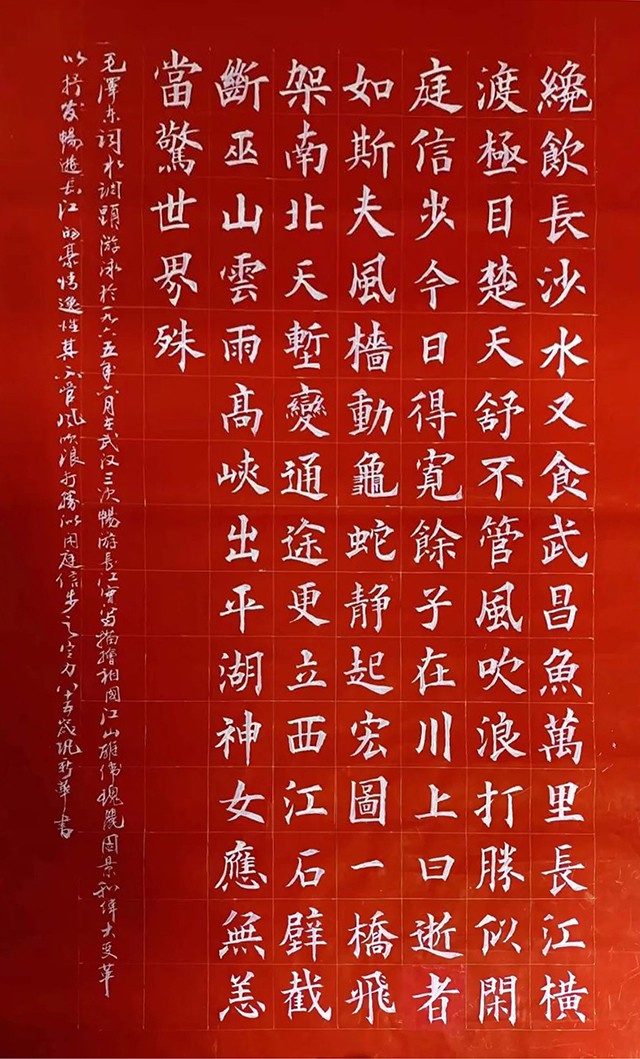 纔飲長沙水又食武昌魚萬里長江橫
渡極目楚天舒不管風吹浪打勝似閑
庭信步今日得寬餘子在川上曰逝者
如斯夫風檣動龜蛇静起宏圖一橋飛
架南北天塹變通途更立西江石壁截
斷巫山雲雨高峽出平湖神女應無恙
當驚世界殊
毛澤东词水调頭游泳於一九六五年六月在武汉三次暢游長江描繪祖國江山雄偉瑰麗图景和偉大变革
以抒发暢遊長江的豪情逸性其不管風吹浪打勝似闲庭信步之定力八歲巩新華書